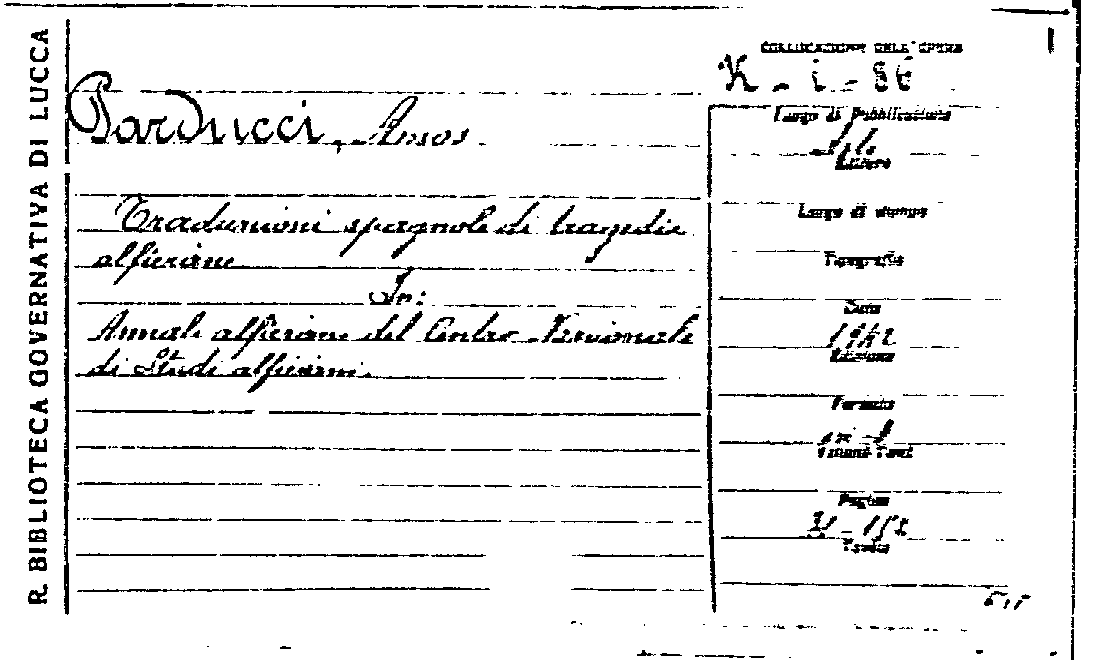 R. BIBLIOTECA GOVERNATIVA DI LUCCA
Parducci, Amos
Traduzioni spagnole di tragedie
alfieriane
In:
Annali alfieriani del Centro Nazionale
di Studi alfieriani.
COLLOCAZIONE DELL'OPERA
K - i - 86
Luogo di Pubblicazione
Editore
Luogo di stampa
Tipografia
Data
1942
Edizione
Formato
in - 8
Volumi Tomi
Pagine
31 - 152
Tavole